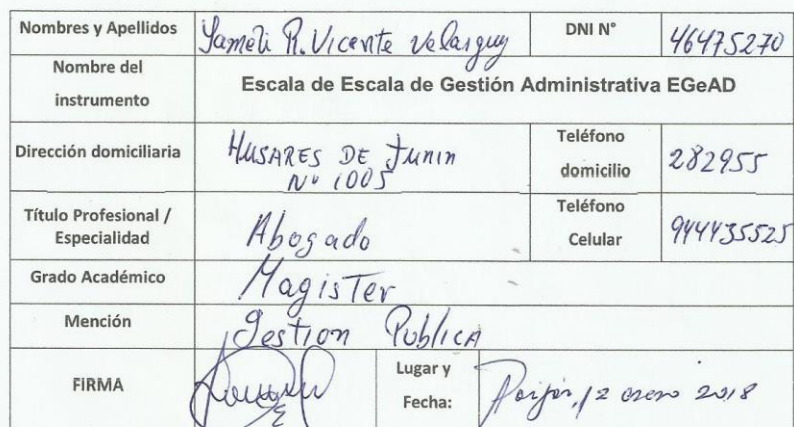 Nombres y Apellidos Yameli R. Vicente Velasquez DNI N° 46475270
Nombre del
instrumento
Escala de Escala de Gestión Administrativa EGeAD
Dirección domiciliaria HUSARES DE JUNIN
N° 1005
Teléfono
domicilio
282955
Título Profesional /
Especialidad
Abogado
Teléfono
Celular
944435525
Grado Académico Magister
Mención Gestion Publica
FIRMA
Lugar y
Fecha:
12 enero 2018